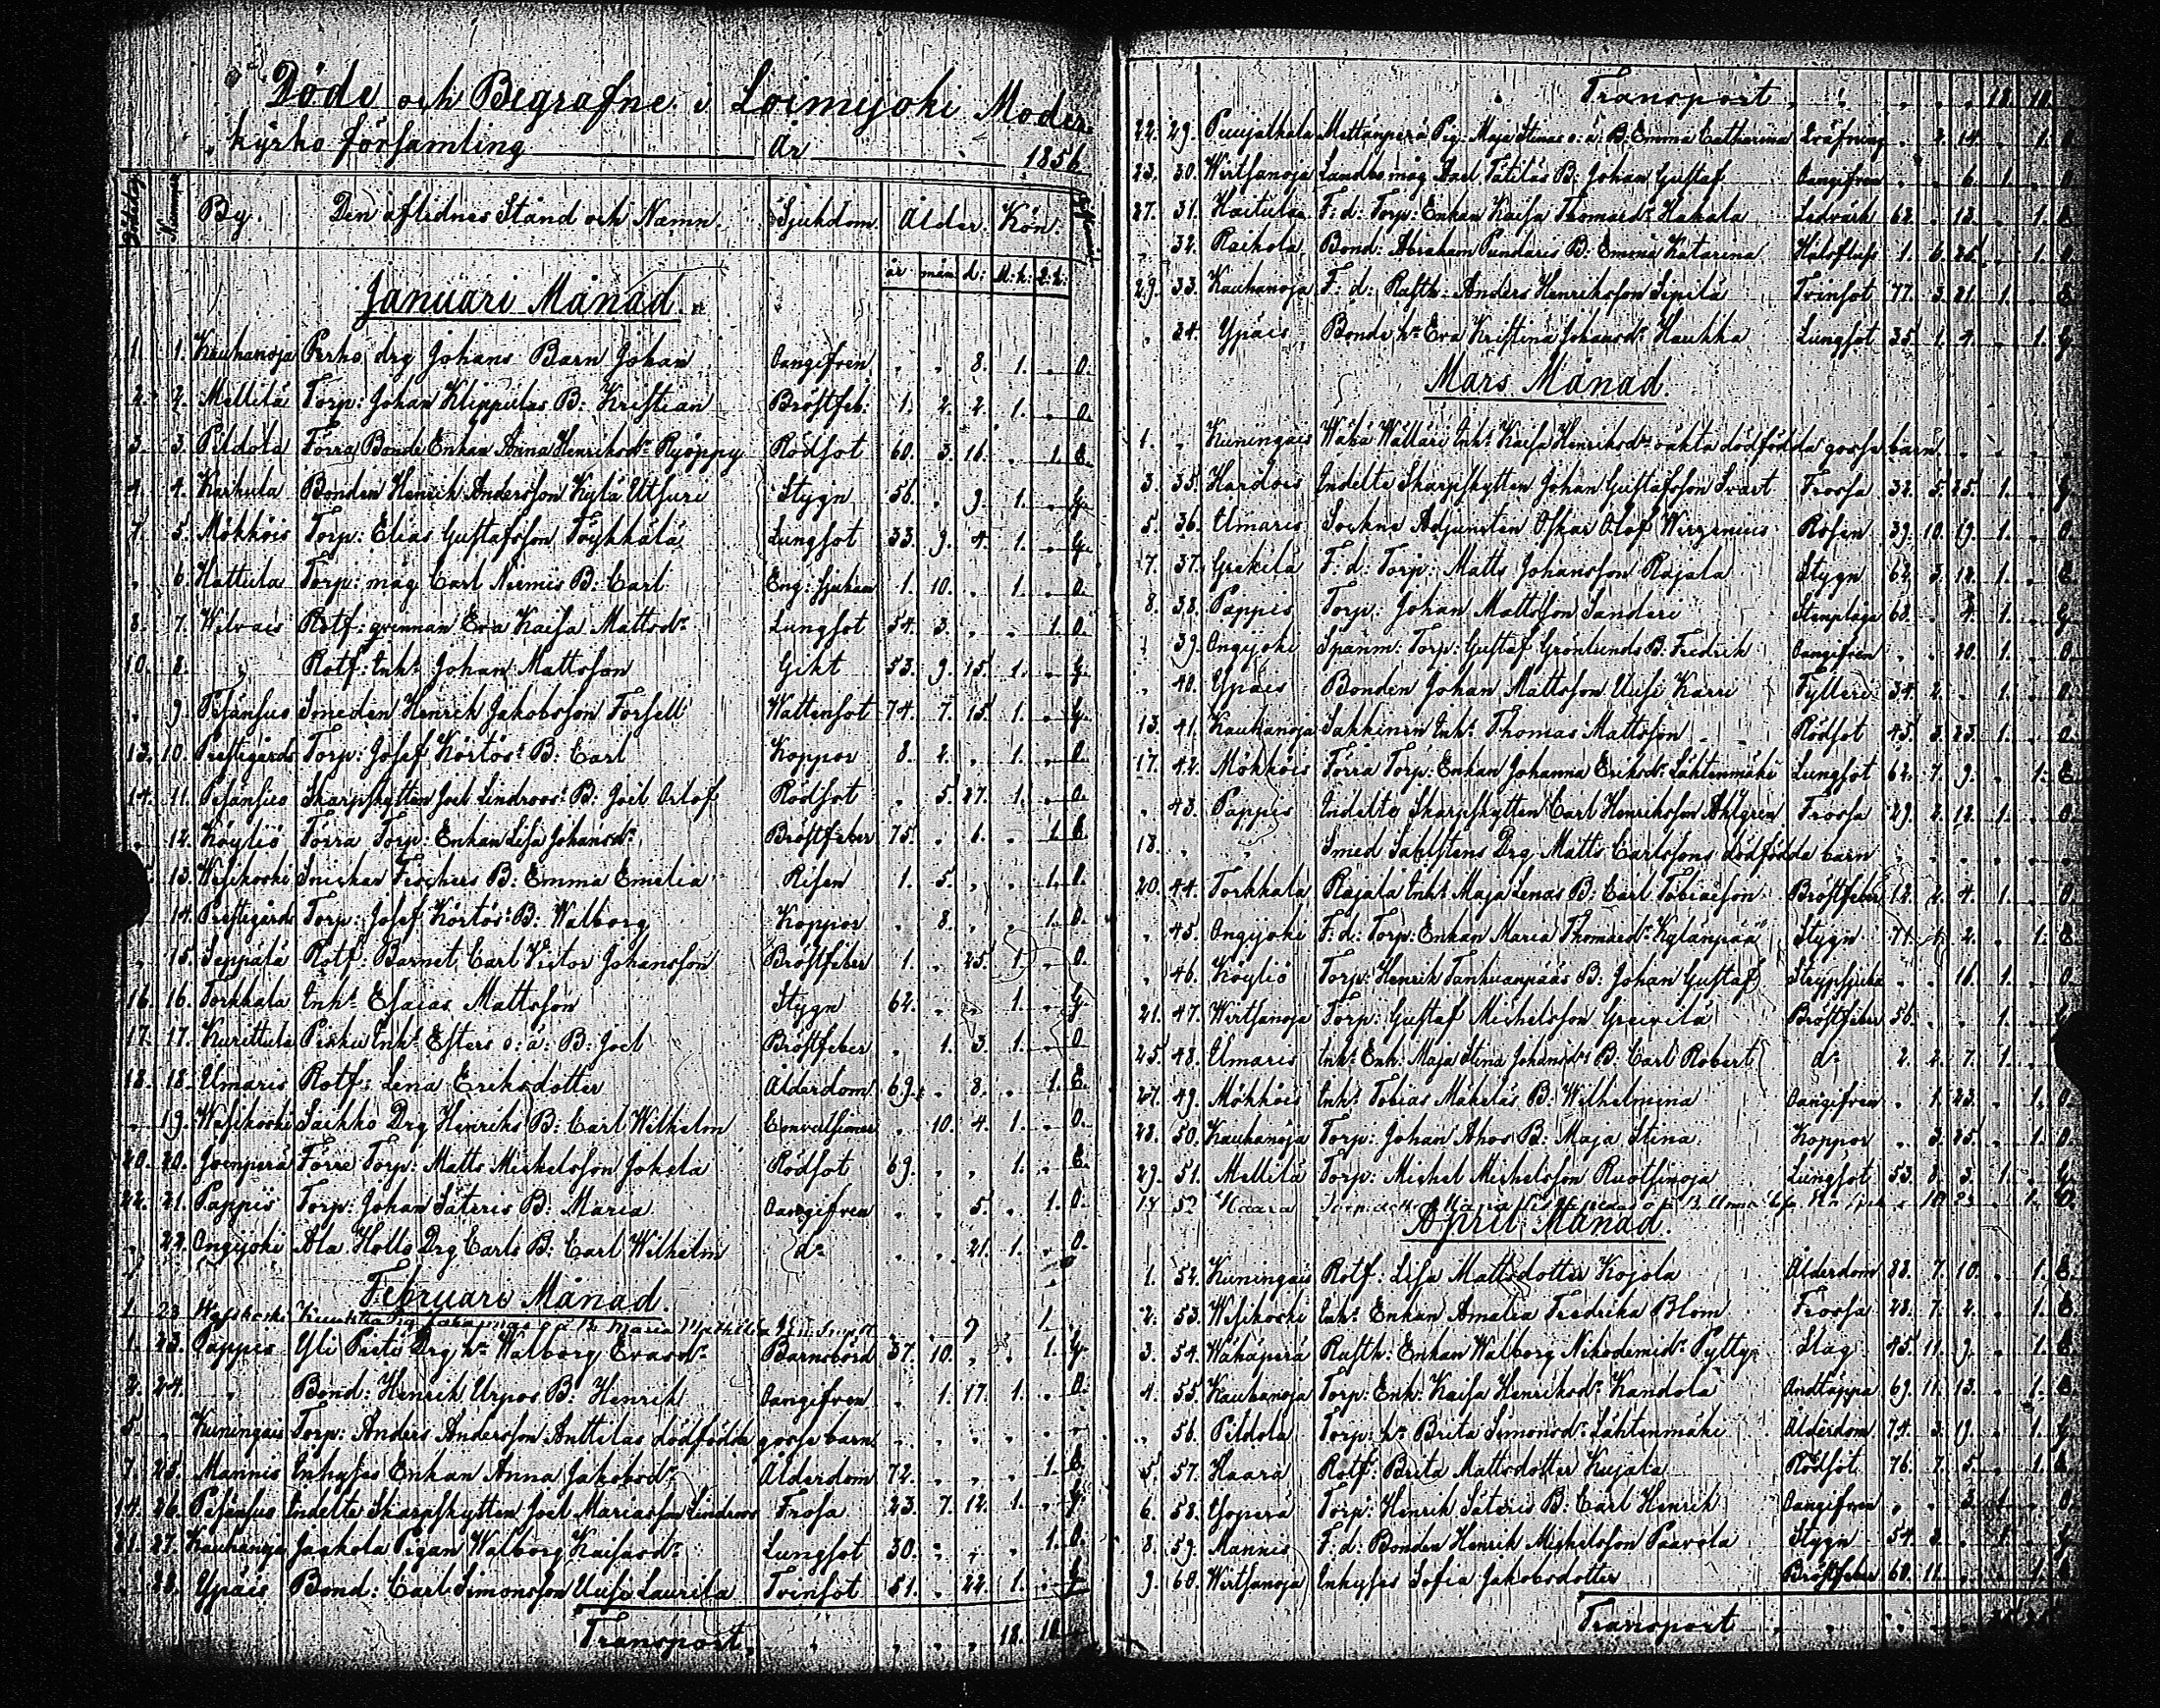 Döde och Begrafne i Loimijoki Moder-
kyrko församling År 1856
Dödsdag. Nummer By. Den aflidnes Stånd och Namn. Sjukdom. Ålder. Kön.
år mån: d: M:k: Q:k:
Januari Månad.
1. 1. Kauhanoja Perho drg Johans Barn Johan Oangifven „ „ 8. 1. „ O.
2. 2. Mellilä Torp: Johan Klippulas B: Kristian Bröstfeb: 1. 2. 2. 1. „ O.
3. 3. Pildola Förra Bonde Enkan Anna Henriksdr Ryöppy Rödsot 60. 3. 16. „ 1. E.
4. 4. Karhula Bonden Henrik Andersson Kylä Utsuri Stygn 56. „ 9. 1. „ G.
7. 5. Mökköis Torp: Elias Gustafsson Töykkälä Lungsot 33. 9. 4. 1. „ G.
„ 6. Hattula Torp: måg Carl Niemis B: Carl Eng: sjukan 1. 10. „ 1. „ O.
8. 7. Wilvais Rotf: qvinnan Eva Kaisa Mattsdr Lungsot 54. 3. „ „ 1. O.
10. 8. „ Rotf: Inhs Johan Mattsson Gikt 53. 9. 15. 1. „ G.
„ 9. Pesänsuo Smeden Henrik Jakobsson Forsell Wattensot 74. 7. 15. 1. „ G.
13. 10. Prestegårds Torp: Josef Körtös B: Carl Koppor 8. 2. „ 1. „ O.
14. 11. Pesänsuo Skarpskytten Joel Lindroos B: Joel Orlof Rödsot „ 5. 27. 1. „ O.
„ 12. Köyliö Förra Torp: Enkan Lisa Johansdr Bröstfeber 75. „ 6. „ 1. E.
13. Wesikoski Snickan Fischers B: Emma Emelia Risen 1. 5. „ „ 1. O.
14. Prestegårds Torp: Josef Körtös B: Walborg Koppor „ 8. „ „ 1. O.
„ 15. Seppälä Rotf: Barnet Carl Victor Johansson Bröstfeber 1. „ 25. 1. „ O.
16. 16. Torkkala Inhs Esaias Mattsson Stygn 62. „ „ 1. „ G.
17. 17. Kurittula Inhs Esters o: ä: B: Joel Bröstfeber „ 1. 3. 1. „ O
18. 18. Ilmaris Rotf: Lena Eriksdotter Ålderdom 69. „ 8. „ 1. E.
„ 19. Wesikoski Saikko Drg Henriks B: Carl Wilhelm Convulsioner „ 10. 4. 1. „ O.
20. 20. Joenperä Förre Torp: Matts Michelsson Jokela Rödsot 69. „ „ 1. „ E.
22. 21. Pappis Torp: Johan Säteris B: Maria Oangifven „ „ 5. „ 1. O.
„ 22. Ongijoki Ala Hollo Drg Carls B: Carl Wilhelm do „ „ 21. 1. „ O.
Februari Månad.
1. 23 Maria 9 1
1. 23. Pappis Yli Piste Drg hu Walborg Evasdr Barnsbörd 37. 10. „ „ 1. G.
2. 24. „ Bond: Henrik Urpos B: Henrik Oangifven „ 1. 17. 1. „ O.
5. „ Kuningais Torp: Anders Andersson Anttilas dödfödda gosse barn.
7. 25. Mannis Inhyses Enkan Anna Jakobsdr Ålderdom 72. „ „ „ 1. E.
14. 26. Pesänsuo Indelte Skarpskytten Joel Mariasson Lindroos Frosa 23. 7. 12. 1. „ G.
21. 27. Kauhanoja Jaakola Pigan Walborg Kaisasdr Lungsot 30. „ „ „ 1. O.
„ 28. Ypäis Bond: Carl Simonsson Uusi Laurila Tvinsot 51. „ 22. 1. „ G
Transport „ „ „ „ 18. 10.
Transport „ „ „ „ 18. 10.
22. 29. Mattänperä Pig: Maja Stinas o: ä: B: Emma Catharina „ 2. 14. „ 1. O.
23. 30. Wirtsanoja Landbo måg Axel Tätiläs B: Johan Gustaf Oangifven „ „ 6. 1. „ O.
27. 31. Haitula F: d: Torp: Enkan Kaisa Thomasdr Hakala Ledvärk 62. „ 12. „ 1. E.
„ 32. Raikola Bond: Abraham Pundaris B: Emma Katarina Halsfluss 1. 6. 26. „ 1. O.
29. 33. Kauhanoja F: d: Rusth: Anders Henriksson Sipilä Tvinsot 77. 3. 21. 1. „ E.
„ 34. Ypäis Bonde hu Eva Kristina Johansdr Haukka Lungsot 35. 1. 4. „ 1. G.
Mars Månad.
1. „ Kuningais Wähä Wälläri Inhs Kaisa Henriksdr oäkta dödfödda gosse barn
3. 35. Hardois Indelte Skarpskytten Johan Gustafsson Svart Frossa 32. 5. 25. 1. „ G.
5. 36. Ilmaris Sockne Adjuncten Oskar Olof Wirzenius Rosen 39. 10. 19. 1. „ O.
7. 37. Grekilä F: d: Torp: Matts Johansson Rajala Stygn 62. 3. 12. 1. „ E.
8. 38. Pappis Torp: Johan Mattsson Sanderi Stenplåga 68. „ 4. 1. „ G.
„ 39. Ongijoki Spånm: Torp: Gustaf Grönlunds B: Fredrik Oangifven „ „ 20. 1. „ O.
„ 40. Ypäis Bonden Johan Mattsson Uusi Karri Fylleri 34. 2. „ 1. „ O.
13. 41. Kauhanoja Sakkinen Inhs Thomas Mattsson Rödsot 45. 3. 23. 1. „ O.
17. 42. Mökköis Förra Torp: Enkan Johanna Eriksdr Lähtenmäki Lungsot 62. 7. 9. „ 1. E.
„ 43. Pappis Indelte Skarpskytten Carl Henriksson Ahlgren Frossa 29. 2. 12. 1. „ O.
18. „ „ Smed Sahlstens Drg Matts Carlssons dödfödda barn
20. 44. Torkkala Rajala Inhs Maja Lenas B: Carl Tobiaesson Bröstfeber 12. 2. 4. 1. „ O.
„ 45. Ongijoki F: d: Torp: Enkan Maria Thomasdr Kylänpää Stygn 71. 2. „ 1. E.
„ 46. Köyliö Torp: Henrik Tanhuanpääs B: Johan Gustaf Strypsjuka „ „ 16. 1. „ O.
21. 47. Wirtsanoja Torp: Gustaf Michelsson Greivilä Bröstfeber 56. „ „ 1. „ G
25. 48. Ilmaris Inhs Enk: Maja Stina Johansdrs B: Carl Robert do 2. 2. 7. 1. „
27. 49. Mökköis Inhs Tobias Mäkeläs B: Wilhelmina Oangifven „ 1. 23. „ 1. O.
28. 50. Kauhanoja Torp: Johan Ahos B: Maja Stina Koppor „ 3. 25. „ 1. O.
29. 51. Mellilä Torp: Michel Michelsson Ruotsinoja Lungsot 53. 8. 3. 1. „ G.
52 Haara Maria 10 23 1. O.
April Månad.
1. 52. Kuningais Rotf: Lisa Mattsdotter Kojola Ålderdom 83. 7. 10. „ 1. E.
2. 53. Wesikoski Inhs Enkan Amalia Fredrika Blom Frossa 28. 7. 2. „ 1. E.
3. 54. Wähäperä Rusth: Enkan Walborg Nikodemidr Pytty Slag 45. 11. 9. „ 1. E.
4. 55. Kauhanoja Torp: Enk: Kaisa Henriksdr Kandola Andtäppa 69. 11. 13. „ 1. E.
„ 56. Pildola Torp: hu Brita Simonsdr Lähtenmäki Ålderdom 74. 3. 19. „ 1. G.
5 57. Haara Rotf: Brita Mattsdotter Kujala Rödsot 76. 7. 5. „ 1.
6. 58. Yöperä Torp: Henrik Säteris B: Carl Henrik Oangifven „ „ 3. 1. „ O.
8. 59. Mannis F: d: Bonden Henrik Michelsson Paavola Stygn 54. 2. „ 1. „ G
9. 60. Wirtsanoja Inhyses Sofia Jakobsdotter Bröstfeber 60. 11. „ „ 1.
Transport